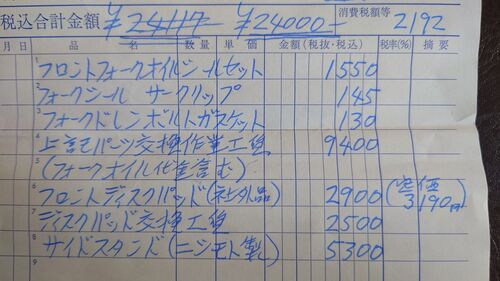 税込合計金額 ¥24117 ¥24000- 消費税額等 2192
月 日 品名 数量 単価 金額(税抜・税込) 税率(%) 摘要
1 フロントフォークオイルシールセット 1550
2 フォークシール サークリップ 145
3 フォークドレンボルトガスケット 130
4 上記パーツ交換作業工賃 9400
5 (フォークオイル代金含む)
6 フロントディスクパッド(社外品) 2900 (定価 3190円)
7 ディスクパッド交換工賃 2500
8 サイドスタンド(ニシモト製) 5300
9